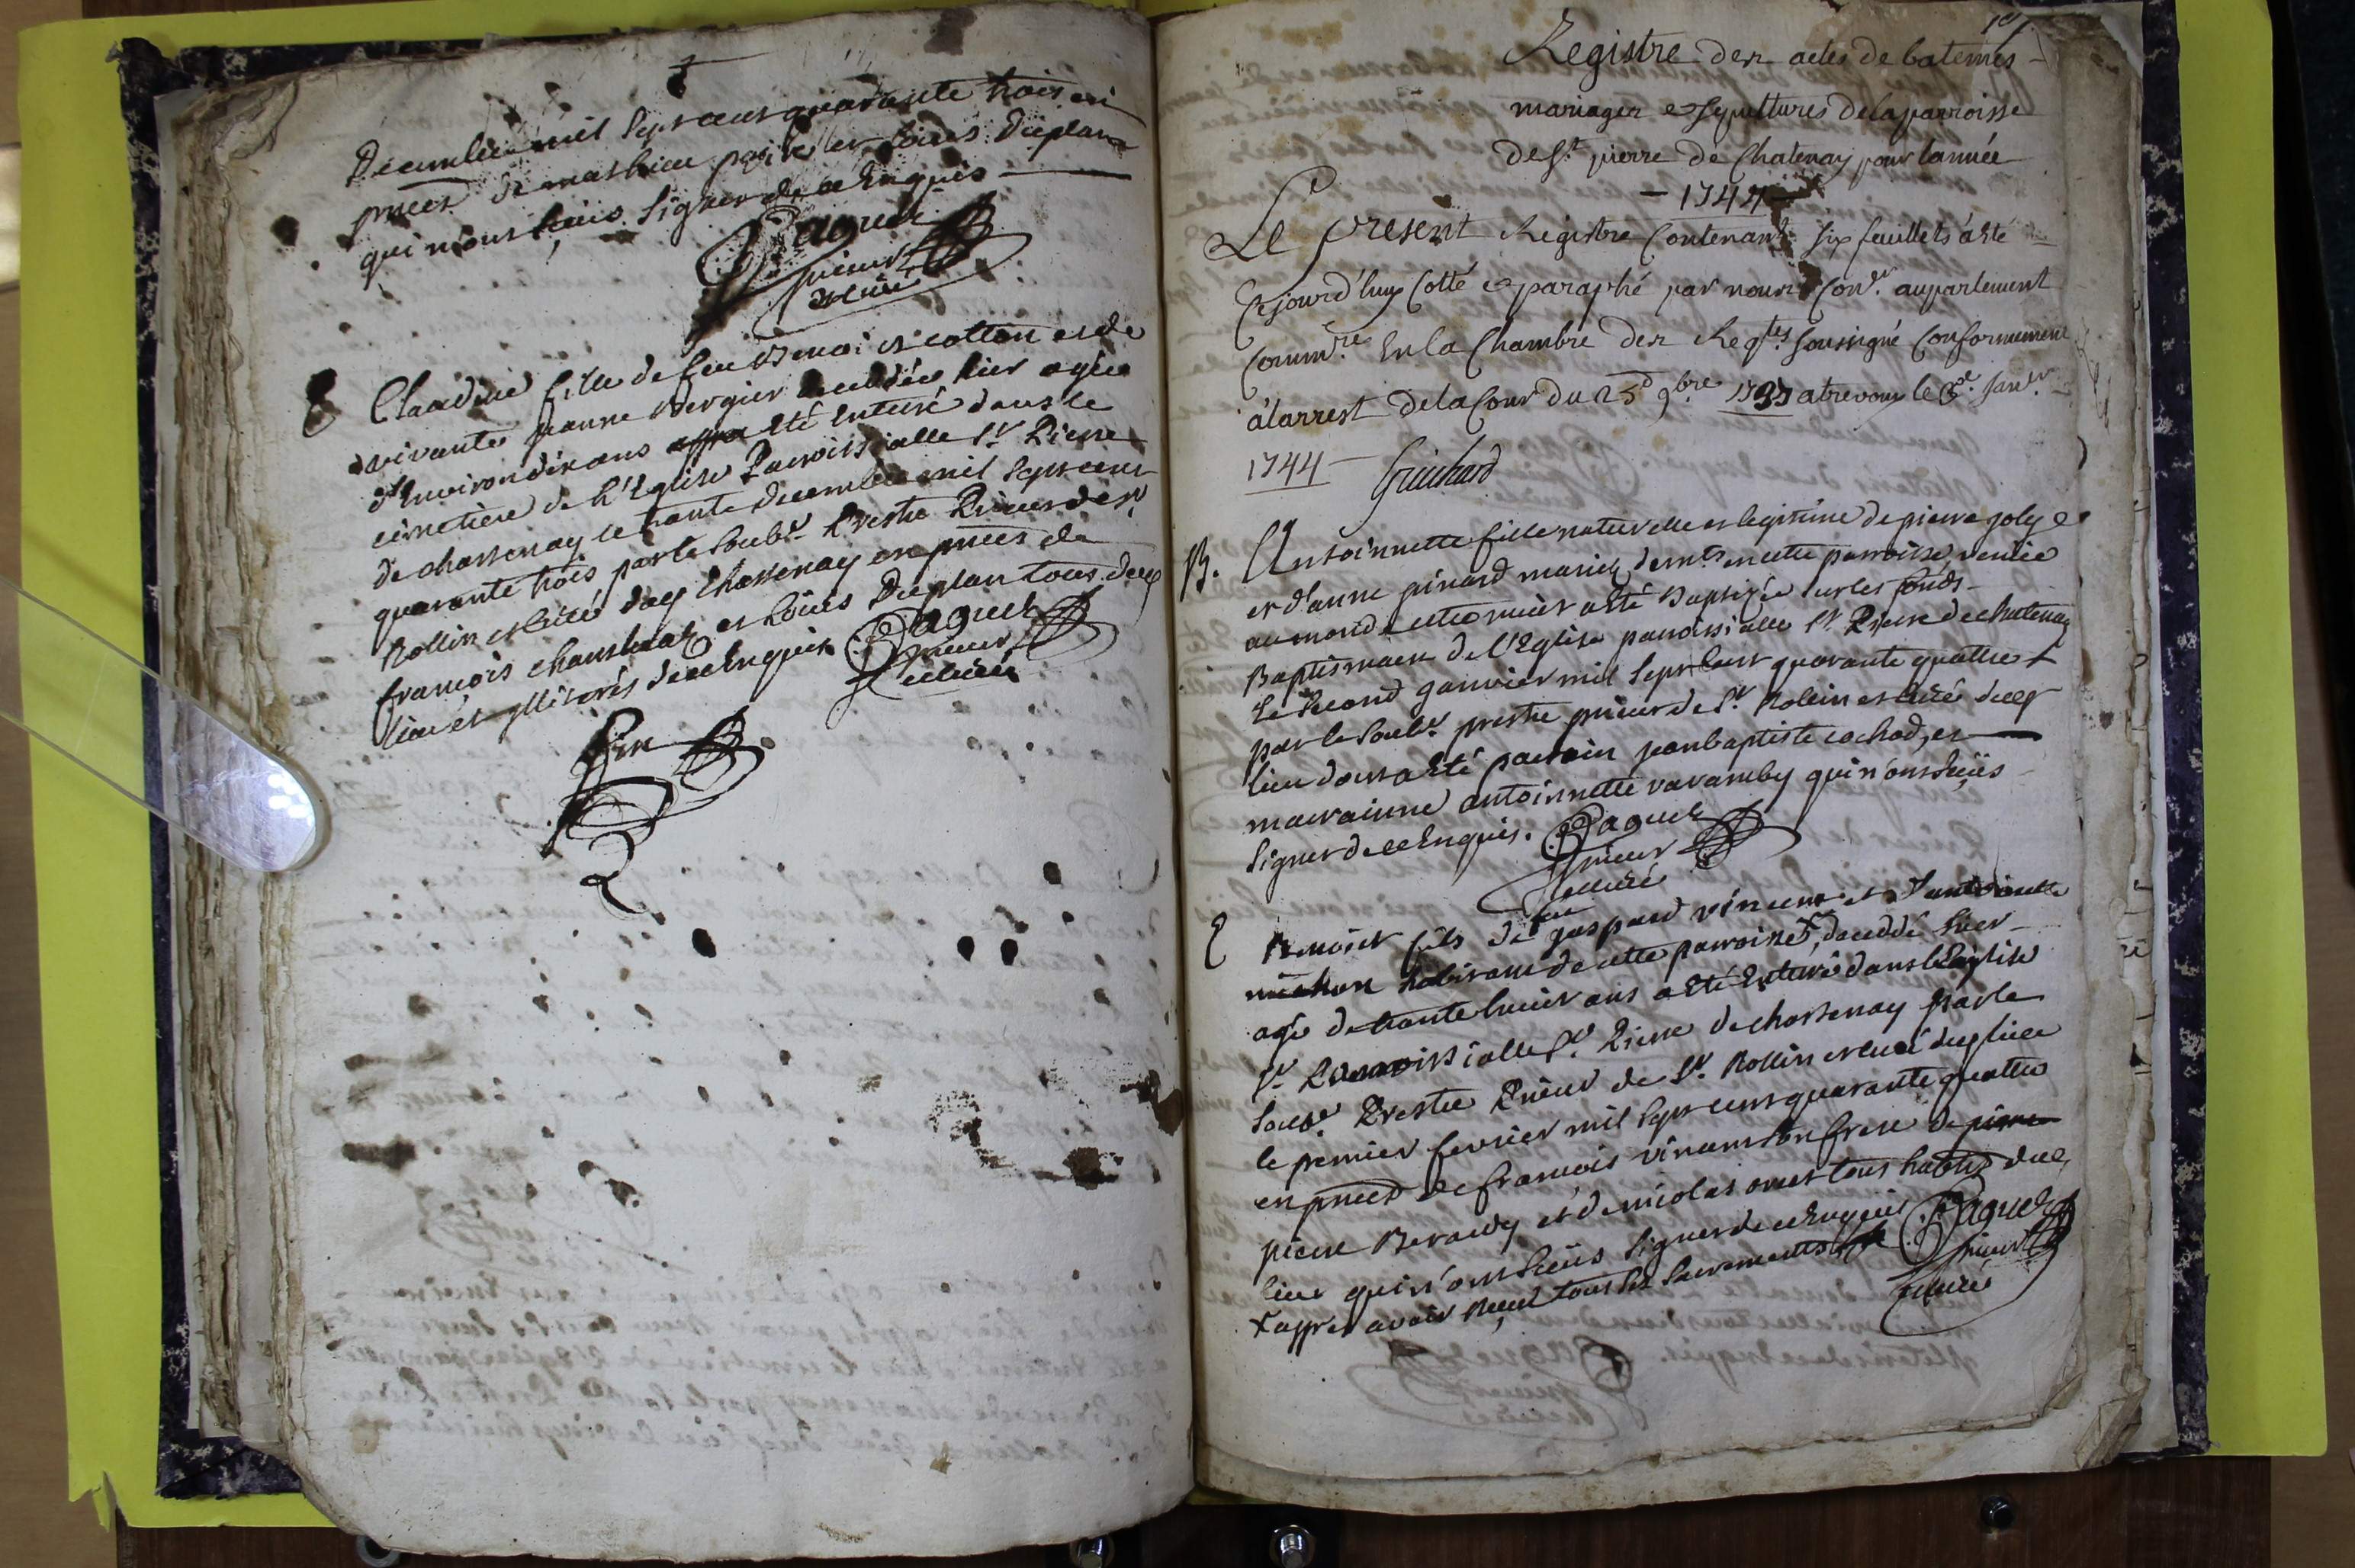 Decembre mil sept cens quarante trois en
pnces de mathieu et Loüis Duplan
qui n'ont sceüs signer de ce Enquis
Paquet
prieur
et curé
E Claudine fille de feu Benoi cotton et de
vivante jeanne Bergier decedée hier agée
d'Environ dix ans a Esté Enterré dans le
cimetiere de L'Eglise Parroissialle St Pierre
de chastenay le trante decembre mil sept cens
quarante trois par le soubt Prestre Prieur de St
Rollin et curé duq chastenay en pnces de
francois et Loüis Duplan tous deux
dud lieu et illiterés de ce Enquis Paquet
prieur
et curé
Fin
Registre des actes de batemes
mariages et sepultures de la parroisse
de St pierre de Chatenay pour l'année
- 1744 -
Le present Registre Contenant six feuillets a été
Cejourd'huy Cotté et paraphé par nous Conr. au parlement
Commre. En la Chambre des Reqtes soussigné Conformement
à l'arrest de la Cour du 25 9bre 1737 a trevoux le Janvr.
1744 Guichard
B. Antoinette fille naturelle et legitime de pierre joly &
et d'anne pinard mariez demts en cette parroisse, venüe
au monde cette nuit a Esté Baptizée sur les fonds
Baptismaux de l'Eglise parroissialle St Pierre de chatenay
Le second janvier mil sept cens quarante quattre
par le soubt prestre prieur de St Rollin et curé duq
lieu dont a Esté parrain jean baptiste cochod, et
marrainne antoinette varamby qui n'ont sceüs
signer de ce Enquis. Paquet
prieur
et curé
E Benoist fils de feu gaspard vincent et d'antoinette
michon habitans de cette parroisse +, decedé hier
agé de trante huit ans a Esté Enterré dans l'Eglise
St Parroissialle St Pierre de chastenay par le
soubt Prestre Prieur de St Rollin et curé duq lieu
le premier fevrier mil sept cens quarante quattre
en pnces de francois vincent son frere de pierre
pierre Beraudy et de nicolas tous habts duq
lieu qui n'ont sceüs signer de ce Enquis Paquet
+ appres avoir receu tous les sacremens prieur
et curé